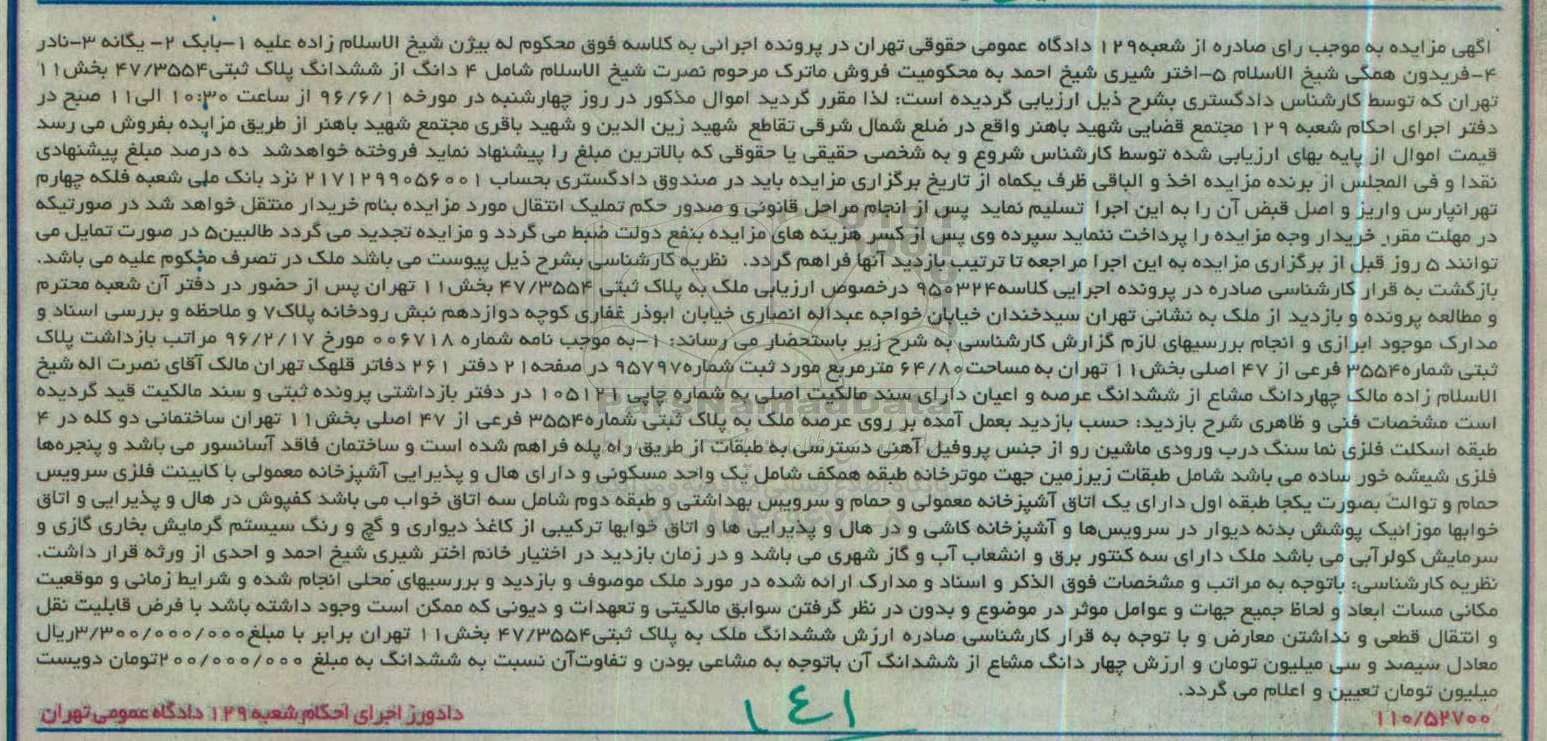 آگهی مزایده به موجب رای صادره از شعبه۱۲۹ دادگاه عمومی حقوقی تهران در پرونده اجرائی به کلاسه فوق محکوم له بیژن شیخ الاسلام زاده علیه ۱-بابک ۲- یگانه ۳-نادر
۴-فریدون همگی شیخ الاسلام ۵-اختر شیری شیخ احمد به محکومیت فروش ماترک مرحوم نصرت شیخ الاسلام شامل ۴ دانگ از ششدانگ پلاک ثبتی۴۷/۳۵۵۴ بخش۱۱
تهران که توسط کارشناس دادگستری بشرح ذیل ارزیابی گردیده است: لذا مقرر گردید اموال مذکور در روز چهارشنبه در مورخه ۹۶/۶/۱ از ساعت ۱۰:۳۰ الی۱۱ صبح در
دفتر اجرای احکام شعبه ۱۲۹ مجتمع قضایی شهید باهنر واقع در ضلع شمال شرقی تقاطع شهید زین الدین و شهید باقری مجتمع شهید باهنر از طریق مزایده بفروش می رسد
قیمت اموال از پایه بهای ارزیابی شده توسط کارشناس شروع و به شخصی حقیقی یا حقوقی که بالاترین مبلغ را پیشنهاد نماید فروخته خواهدشد ده درصد مبلغ پیشنهادی
نقدا و فی المجلس از برنده مزایده اخذ و الباقی ظرف یکماه از تاریخ برگزاری مزایده باید در صندوق دادگستری بحساب ۲۱۷۱۲۹۹۰۵۶۰۰۱ نزد بانک ملی شعبه فلکه چهارم
تهرانپارس واریز و اصل قبض آن را به این اجرا تسلیم نماید پس از انجام مراحل قانونی و صدور حکم تملیک انتقال مورد مزایده بنام خریدار منتقل خواهد شد در صورتیکه
در مهلت مقرر خریدار وجه مزایده را پرداخت ننماید سپرده وی پس از کسر هزینه های مزایده بنفع دولت ضبط می گردد و مزایده تجدید می گردد طالبین۵ در صورت تمایل می
توانند ۵ روز قبل از برگزاری مزایده به این اجرا مراجعه تا ترتیب بازدید آنها فراهم گردد. نظریه کارشناسی بشرح ذیل پیوست می باشد ملک در تصرف محکوم علیه می باشد.
بازگشت به قرار کارشناسی صادره در پرونده اجرایی کلاسه۹۵۰۳۲۴ درخصوص ارزیابی ملک به پلاک ثبتی ۴۷/۳۵۵۴ بخش۱۱ تهران پس از حضور در دفتر آن شعبه محترم
و مطالعه پرونده و بازدید از ملک به نشانی تهران سیدخندان خیابان خواجه عبداله انصاری خیابان ابوذر غفاری کوچه دوازدهم نبش رودخانه پلاک۷ و ملاحظه و بررسی اسناد و
مدارک موجود ابرازی و انجام بررسیهای لازم گزارش کارشناسی به شرح زیر باستحضار می رساند: ۱-به موجب نامه شماره ۰۰۶۷۱۸ مورخ ۹۶/۲/۱۷ مراتب بازداشت پلاک
ثبتی شماره۳۵۵۴ فرعی از ۴۷ اصلی بخش۱۱ تهران به مساحت۶۴/۸۰ مترمربع مورد ثبت شماره۹۵۷۹۷ در صفحه۲۱ دفتر ۲۶۱ دفاتر قلهک تهران مالک آقای نصرت اله شیخ
الاسلام زاده مالک چهاردانگ مشاع از ششدانگ عرصه و اعیان دارای سند مالکیت اصلی به شماره چاپی ۱۰۵۱۲۱ در دفتر بازداشتی پرونده ثبتی و سند مالکیت قید گردیده
است مشخصات فنی و ظاهری شرح بازدید: حسب بازدید بعمل آمده بر روی عرصه ملک به پلاک ثبتی شماره۳۵۵۴ فرعی از ۴۷ اصلی بخش۱۱ تهران ساختمانی دو کله در ۴
طبقه اسکلت فلزی نما سنگ درب ورودی ماشین رو از جنس پروفیل آهنی دسترسی به طبقات از طریق راه پله فراهم شده است و ساختمان فاقد آسانسور می باشد و پنجره‌ها
فلزی شیشه خور ساده می باشد شامل طبقات زیرزمین جهت موتورخانه طبقه همکف شامل یک واحد مسکونی و دارای هال و پذیرایی آشپزخانه معمولی با کابینت فلزی سرویس
حمام و توالت بصورت یکجا طبقه اول دارای یک اتاق آشپزخانه معمولی و حمام و سرویس بهداشتی و طبقه دوم شامل سه اتاق خواب می باشد کفپوش در هال و پذیرایی و اتاق
خوابها موزائیک پوشش بدنه دیوار در سرویس‌ها و آشپزخانه کاشی و در هال و پذیرایی ها و اتاق خوابها ترکیبی از کاغذ دیواری و گچ و رنگ سیستم گرمایش بخاری گازی و
سرمایش کولرآبی می باشد ملک دارای سه کنتور برق و انشعاب آب و گاز شهری می باشد و در زمان بازدید در اختیار خانم اختر شیری شیخ احمد و احدی از ورثه قرار داشت.
نظریه کارشناسی: باتوجه به مراتب و مشخصات فوق الذکر و اسناد و مدارک ارائه شده در مورد ملک موصوف و بازدید و بررسیهای محلی انجام شده و شرایط زمانی و موقعیت
مکانی مسات ابعاد و لحاظ جمیع جهات و عوامل موثر در موضوع و بدون در نظر گرفتن سوابق مالکیتی و تعهدات و دیونی که ممکن است وجود داشته باشد با فرض قابلیت نقل
و انتقال قطعی و نداشتن معارض و با توجه به قرار کارشناسی صادره ارزش ششدانگ ملک به پلاک ثبتی۴۷/۳۵۵۴ بخش۱۱ تهران برابر با مبلغ۳/۳۰۰/۰۰۰/۰۰۰ریال
معادل سیصد و سی میلیون تومان و ارزش چهار دانگ مشاع از ششدانگ آن باتوجه به مشاعی بودن و تفاوت‌آن نسبت به ششدانگ به مبلغ ۲۰۰/۰۰۰/۰۰۰تومان دویست
میلیون تومان تعیین و اعلام می گردد.
۱۱۰/۵۲۷۰۰ دادورز اجرای احکام شعبه۱۲۹ دادگاه عمومی تهران
۱۴۱
ParsNamadData